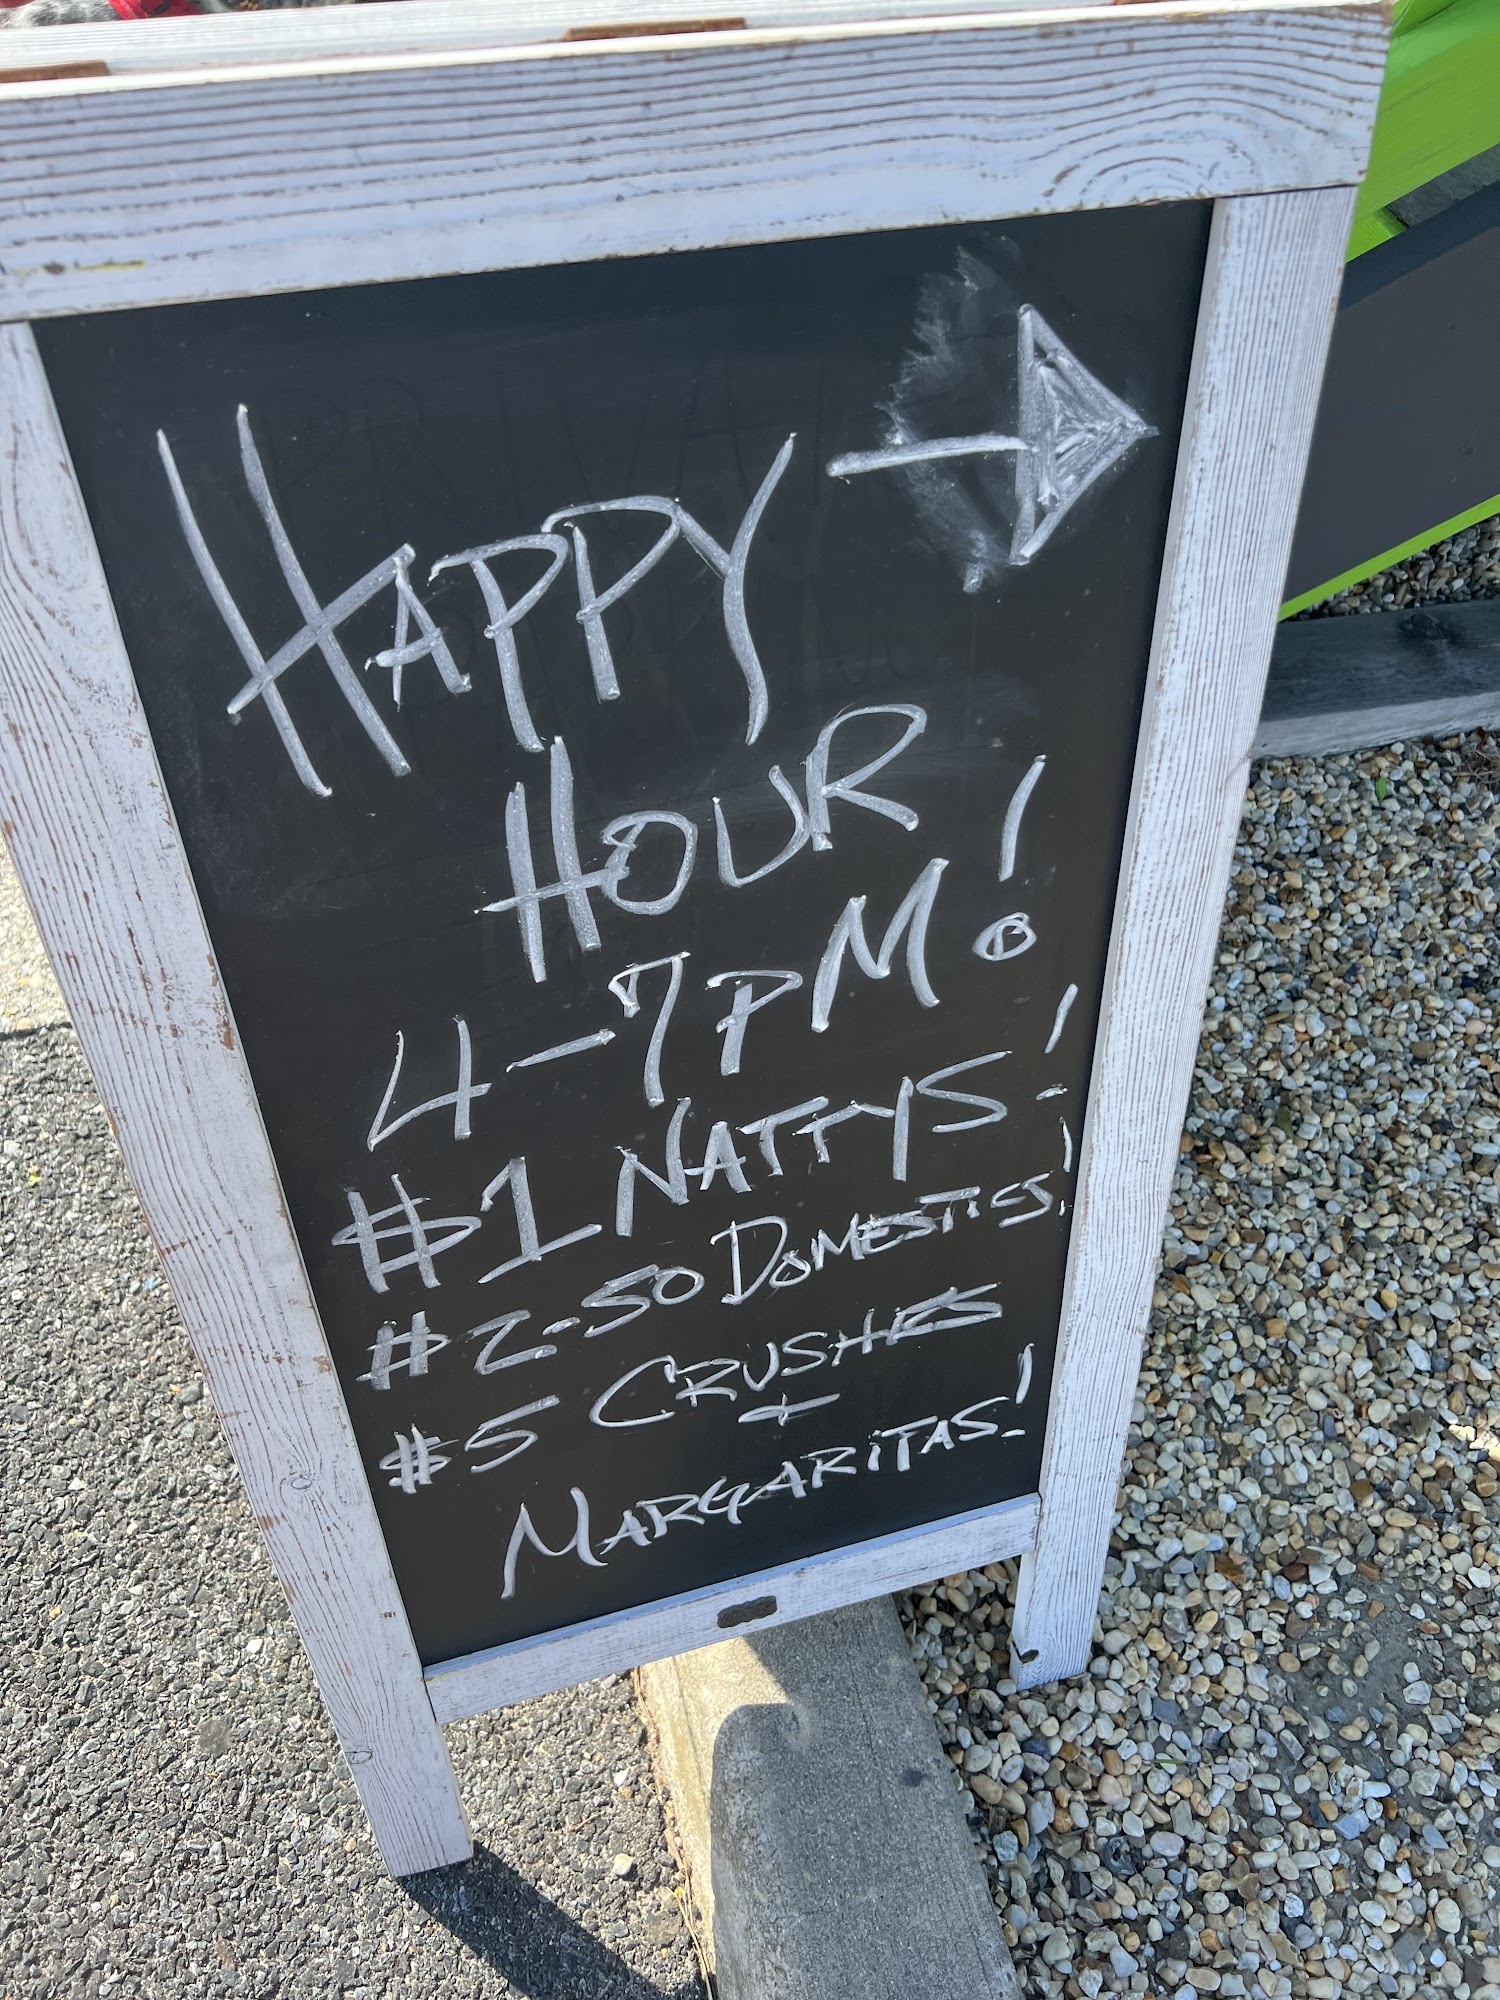 HAPPY
HOUR
4-7PM!
$1 NATTYS!
$2.50 DOMESTICS!
$5 CRUSHES
+
MARGARITAS!